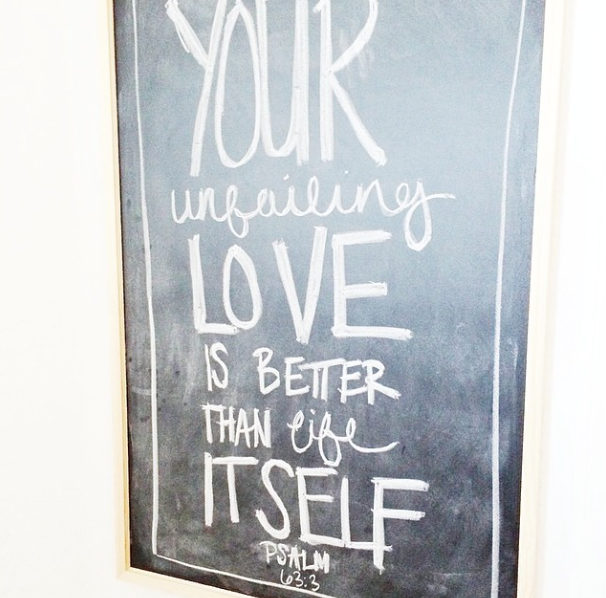 YOUR
unfailing
LOVE
IS BETTER
THAN life
ITSELF
PSALM
63:3